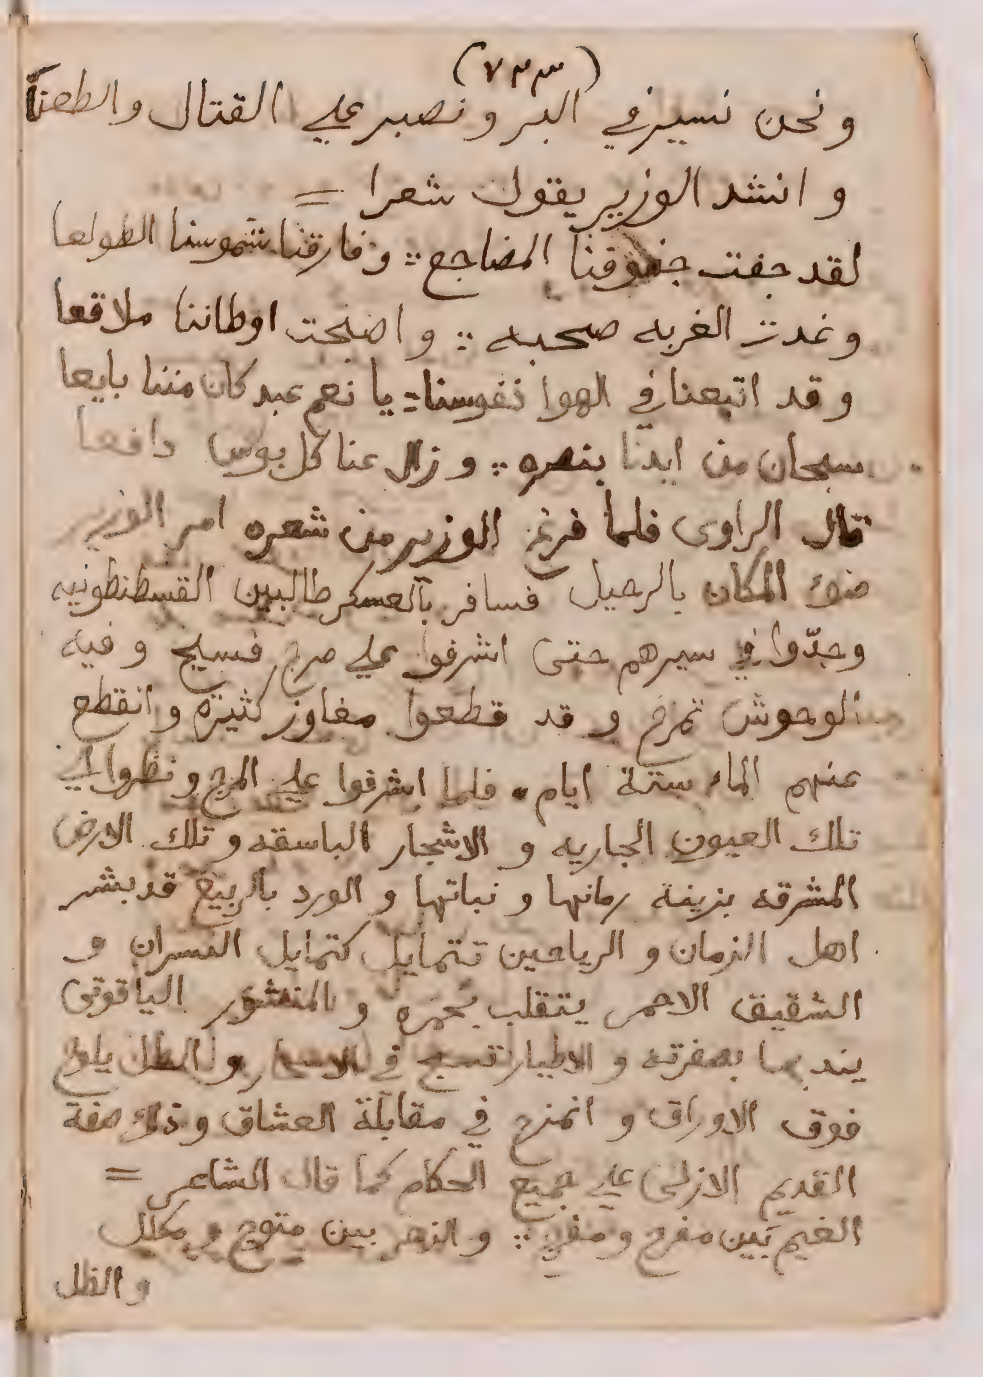 (٧٣٣)
ونحن نسير في البر ونصبر علي القتال والطعنا
وانشد الوزير يقول شعرا =
لقد جفت جفوفنا المضاجع :: وفارقنا شموسنا الطولعا
وغدت الغربه صحبه :: واضحت اوطاننا ملاقعا
وقد اتبعنا في الهوا نفوسنا = يا نعم عبد كان مننا بايعا
سبحان من ايدنا بنصره :: وزال عنا كل بوس دافعا
قال الراوى فلما فرغ الوزير من شعره امر الوزير
المكان بالرحيل فسافر بالعسكر طالبين القسطنطونيه
وجدّوا في سيرهم حتى اشرفوا علي مرج فسيح وفيه
الوحوش تمرح وقد قطعوا مغاوز كثيره وانقطع
عنهم الماء ستة ايام . فلما اشرفوا علي المرج ونظروا الي
تلك العيون الجاريه والاشجار الباسقه وتلك الارض
المشرقه بزينه رمانها ونباتها والورد بالربيع قد بشر
اهل الزمان والرياحين تتمايل كتمايل النسران و
الشقيق الاحمر يتقلب بحمره والمنشور الياقوتى
بصفرته والاطيار تسبح في الاسحار والطل يلوح
فوق الاوراق و في مقابلة العشاق وذلك صفة
القديم الازلى علي جميع الحكام كما قال الشاعر =
الغيم بين مفرح ومفرج :: والزهر بين متوج ومكلل
والظل